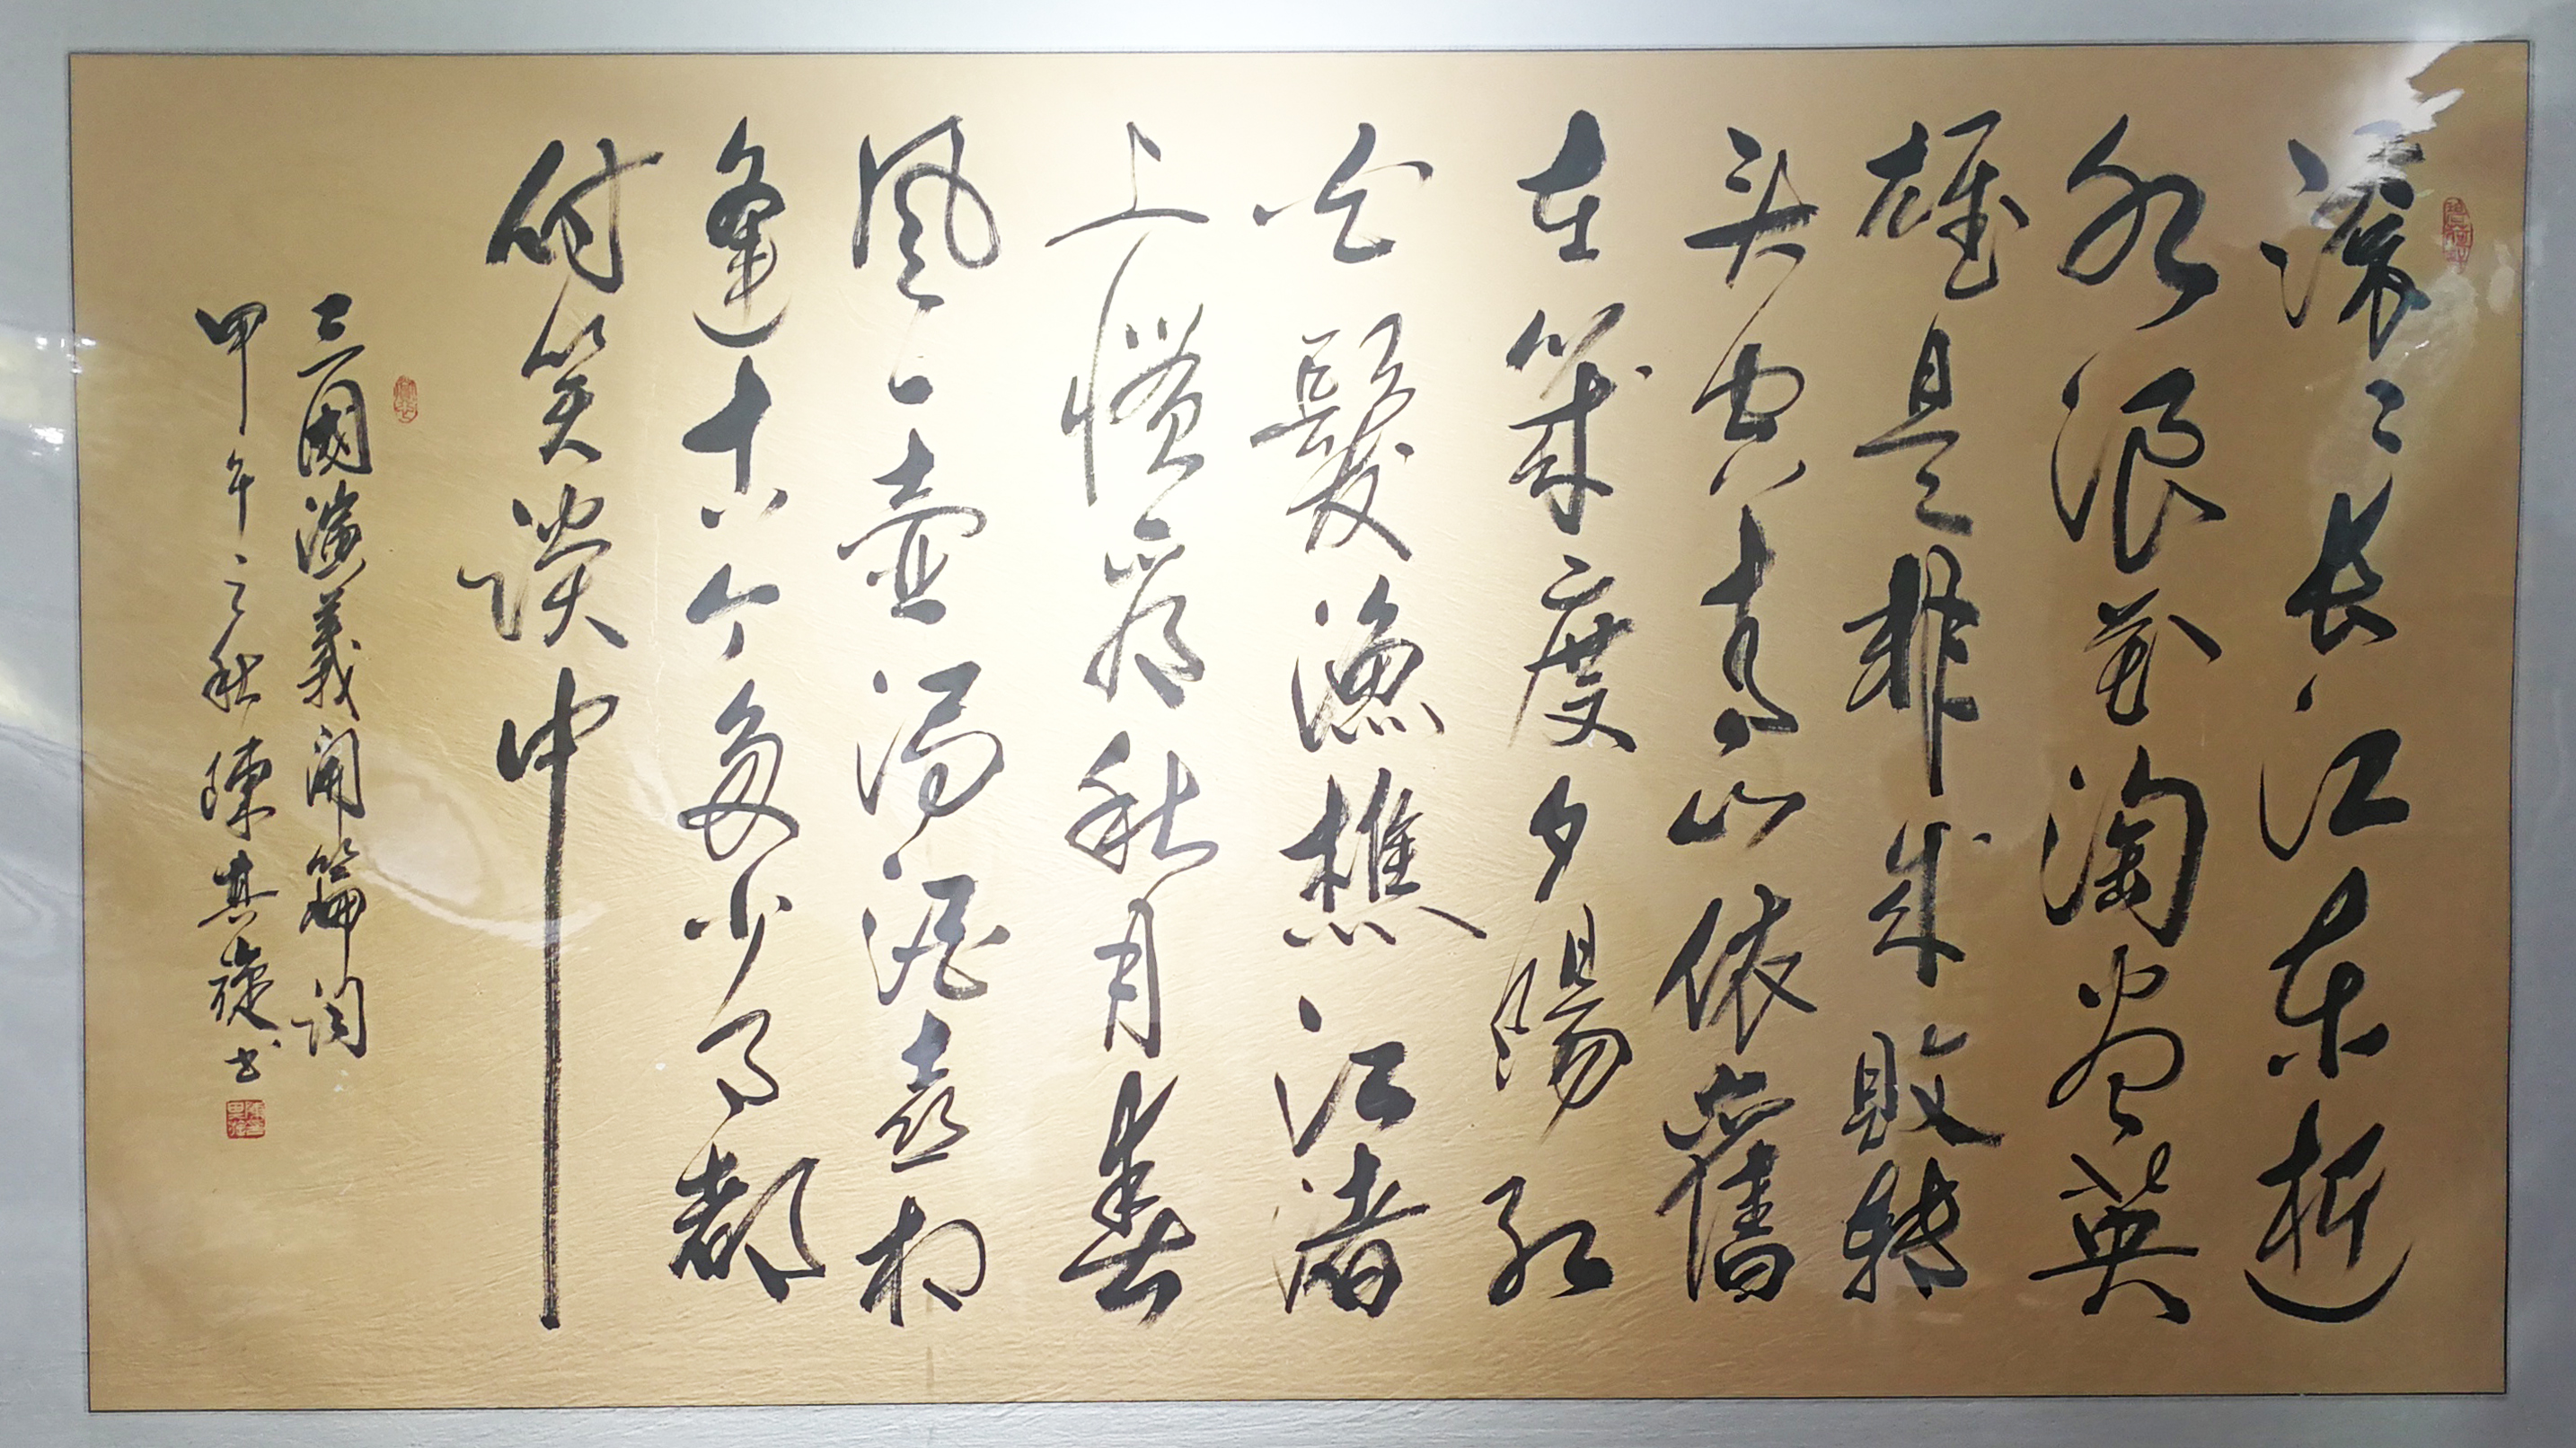 滚滚长江东逝
水浪花淘尽英
雄是非成敗转
头空青山依舊
在幾度夕陽红
白髮漁樵江渚
上惯看秋月春
風一壶濁酒喜相
逢古今多少事都
付笑谈中
三國演義開篇词
甲午之秋陳其书